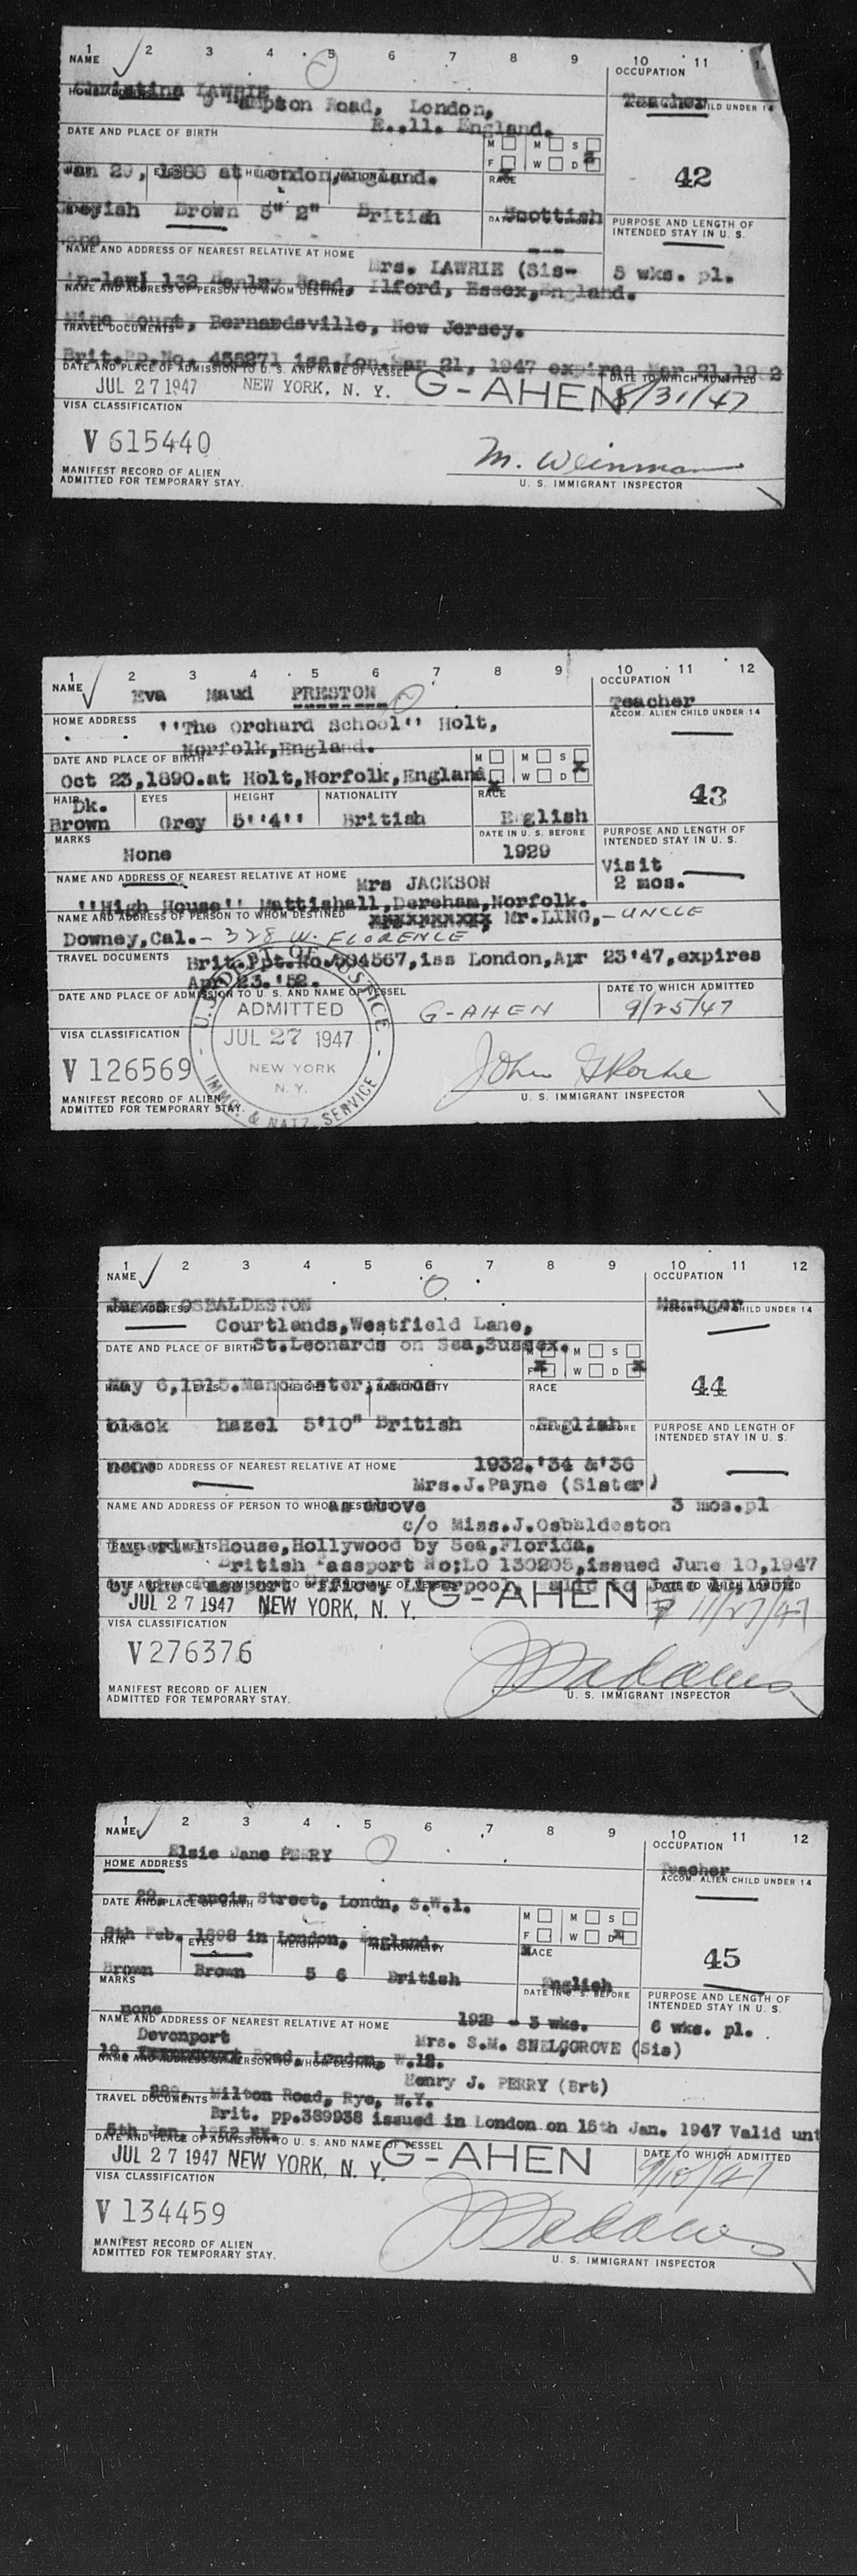 1 2 3 4 5 6 7 8 9 10 11
NAME
OCCUPATION
Christina LAWRIE
Teacher
Road, London,
E..11. England.
CHILD UNDER 14
DATE AND PLACE OF BIRTH
M M S
F W D
Jan 29, 1888 at London, England.
RACE
42
Greyish Brown 5" 2" British Scottish
PURPOSE AND LENGTH OF
INTENDED STAY IN U. S.
NAME AND ADDRESS OF NEAREST RELATIVE AT HOME
Mrs. LAWRIE (Sis-
5 wks. pl.
in-law) 132 Road, Ilford, Essex, England.
NAME AND ADDRESS OF PERSON TO WHOM DESTINED
Mount, Bernardsville, New Jersey.
TRAVEL DOCUMENTS
Brit.Pp.No. 455271 iss.Lon.Mar 21, 1947 expires Mar 21,19 2
DATE AND PLACE OF ADMISSION TO U. S. AND NAME OF VESSEL
DATE TO WHICH ADMITTED
JUL 27 1947 NEW YORK, N. Y. G-AHEN 8/31/47
VISA CLASSIFICATION
V 615440
M. Weinman
MANIFEST RECORD OF ALIEN
ADMITTED FOR TEMPORARY STAY.
U. S. IMMIGRANT INSPECTOR
1 2 3 4 5 6 7 8 9 10 11 12
NAME
OCCUPATION
Eva Maud PRESTON
Teacher
HOME ADDRESS
''The Orchard School'' Holt,
ACCOM. ALIEN CHILD UNDER 14
Norfolk,England.
DATE AND PLACE OF BIRTH
M M S
F W D
Oct 23,1890.at Holt,Norfolk,England
HAIR EYES HEIGHT NATIONALITY RACE
43
Dk.
Brown Grey 5''4'' British English
MARKS
DATE IN U. S. BEFORE
PURPOSE AND LENGTH OF
INTENDED STAY IN U. S.
None 1929
Visit
2 mos.
NAME AND ADDRESS OF NEAREST RELATIVE AT HOME
Mrs JACKSON
''High House'' Mattishall,Dereham,Norfolk.
NAME AND ADDRESS OF PERSON TO WHOM DESTINED
Mr.LING,- UNCLE
Downey,Cal.- 328 W. FLORENCE
TRAVEL DOCUMENTS
Brit.Ppt.No. iss London,Apr 23'47,expires
Apr 23.'52.
DATE AND PLACE OF ADMISSION TO U. S. AND NAME OF VESSEL
DATE TO WHICH ADMITTED
G-AHEN 9/25/47
U. S. DEPT. OF JUSTICE
ADMITTED
JUL 27 1947
NEW YORK
N. Y.
IMMG. & NATZ. SERVICE
VISA CLASSIFICATION
V 126569
MANIFEST RECORD OF ALIEN
ADMITTED FOR TEMPORARY STAY.
U. S. IMMIGRANT INSPECTOR
1 2 3 4 5 6 7 8 9 10 11 12
NAME
OCCUPATION
James OSBALDESTON
Manager
HOME ADDRESS
CHILD UNDER 14
Courtlands,Westfield Lane,
DATE AND PLACE OF BIRTH
St.Leonards on Sea,Sussex.
M M S
F W D
May 6, Manchester,
EYES HEIGHT NATIONALITY
RACE
44
black hazel 5'10" British English
PURPOSE AND LENGTH OF
INTENDED STAY IN U. S.
none
ADDRESS OF NEAREST RELATIVE AT HOME
1932.'34 &'36
Mrs.J.Payne (Sister)
NAME AND ADDRESS OF PERSON TO WHOM DESTINED
as above
3 mos.pl
c/o Miss.J.Osbaldeston
TRAVEL DOCUMENTS
House,Hollywood by Sea,Florida.
British Passport No;LO 130205,issued June 10,1947
by the Passport Office, Liverpool,
DATE TO WHICH ADMITTED
JUL 27 1947 NEW YORK, N. Y. G-AHEN 11/27/47
VISA CLASSIFICATION
V 276376
MANIFEST RECORD OF ALIEN
ADMITTED FOR TEMPORARY STAY.
U. S. IMMIGRANT INSPECTOR
1 2 3 4 5 6 7 8 9 10 11 12
NAME
OCCUPATION
Elsie Jane PERRY
HOME ADDRESS
Teacher
ACCOM. ALIEN CHILD UNDER 14
29, Francis Street, Londn, S.W.1.
DATE AND PLACE OF BIRTH
M M S
F W D
8th Feb. 1898 in London, England.
HAIR EYES HEIGHT NATIONALITY
RACE
45
Brown Brown 5 6 British English
MARKS
DATE IN U. S. BEFORE
PURPOSE AND LENGTH OF
INTENDED STAY IN U. S.
none
NAME AND ADDRESS OF NEAREST RELATIVE AT HOME
3 wks.
6 wks. pl.
Devonport
Mrs. S.M. SNELGROVE (Sis)
Road, London, W.12.
NAME AND ADDRESS OF PERSON TO WHOM DESTINED
Henry J. PERRY (Brt)
Milton Road, Rye, N.Y.
TRAVEL DOCUMENTS
Brit. pp.389938 issued in London on 15th Jan. 1947 Valid unt
5th Jan. 1952
DATE AND PLACE OF ADMISSION TO U. S. AND NAME OF VESSEL
DATE TO WHICH ADMITTED
JUL 27 1947 NEW YORK, N. Y. G-AHEN 9/10/47
VISA CLASSIFICATION
V 134459
MANIFEST RECORD OF ALIEN
ADMITTED FOR TEMPORARY STAY.
U. S. IMMIGRANT INSPECTOR